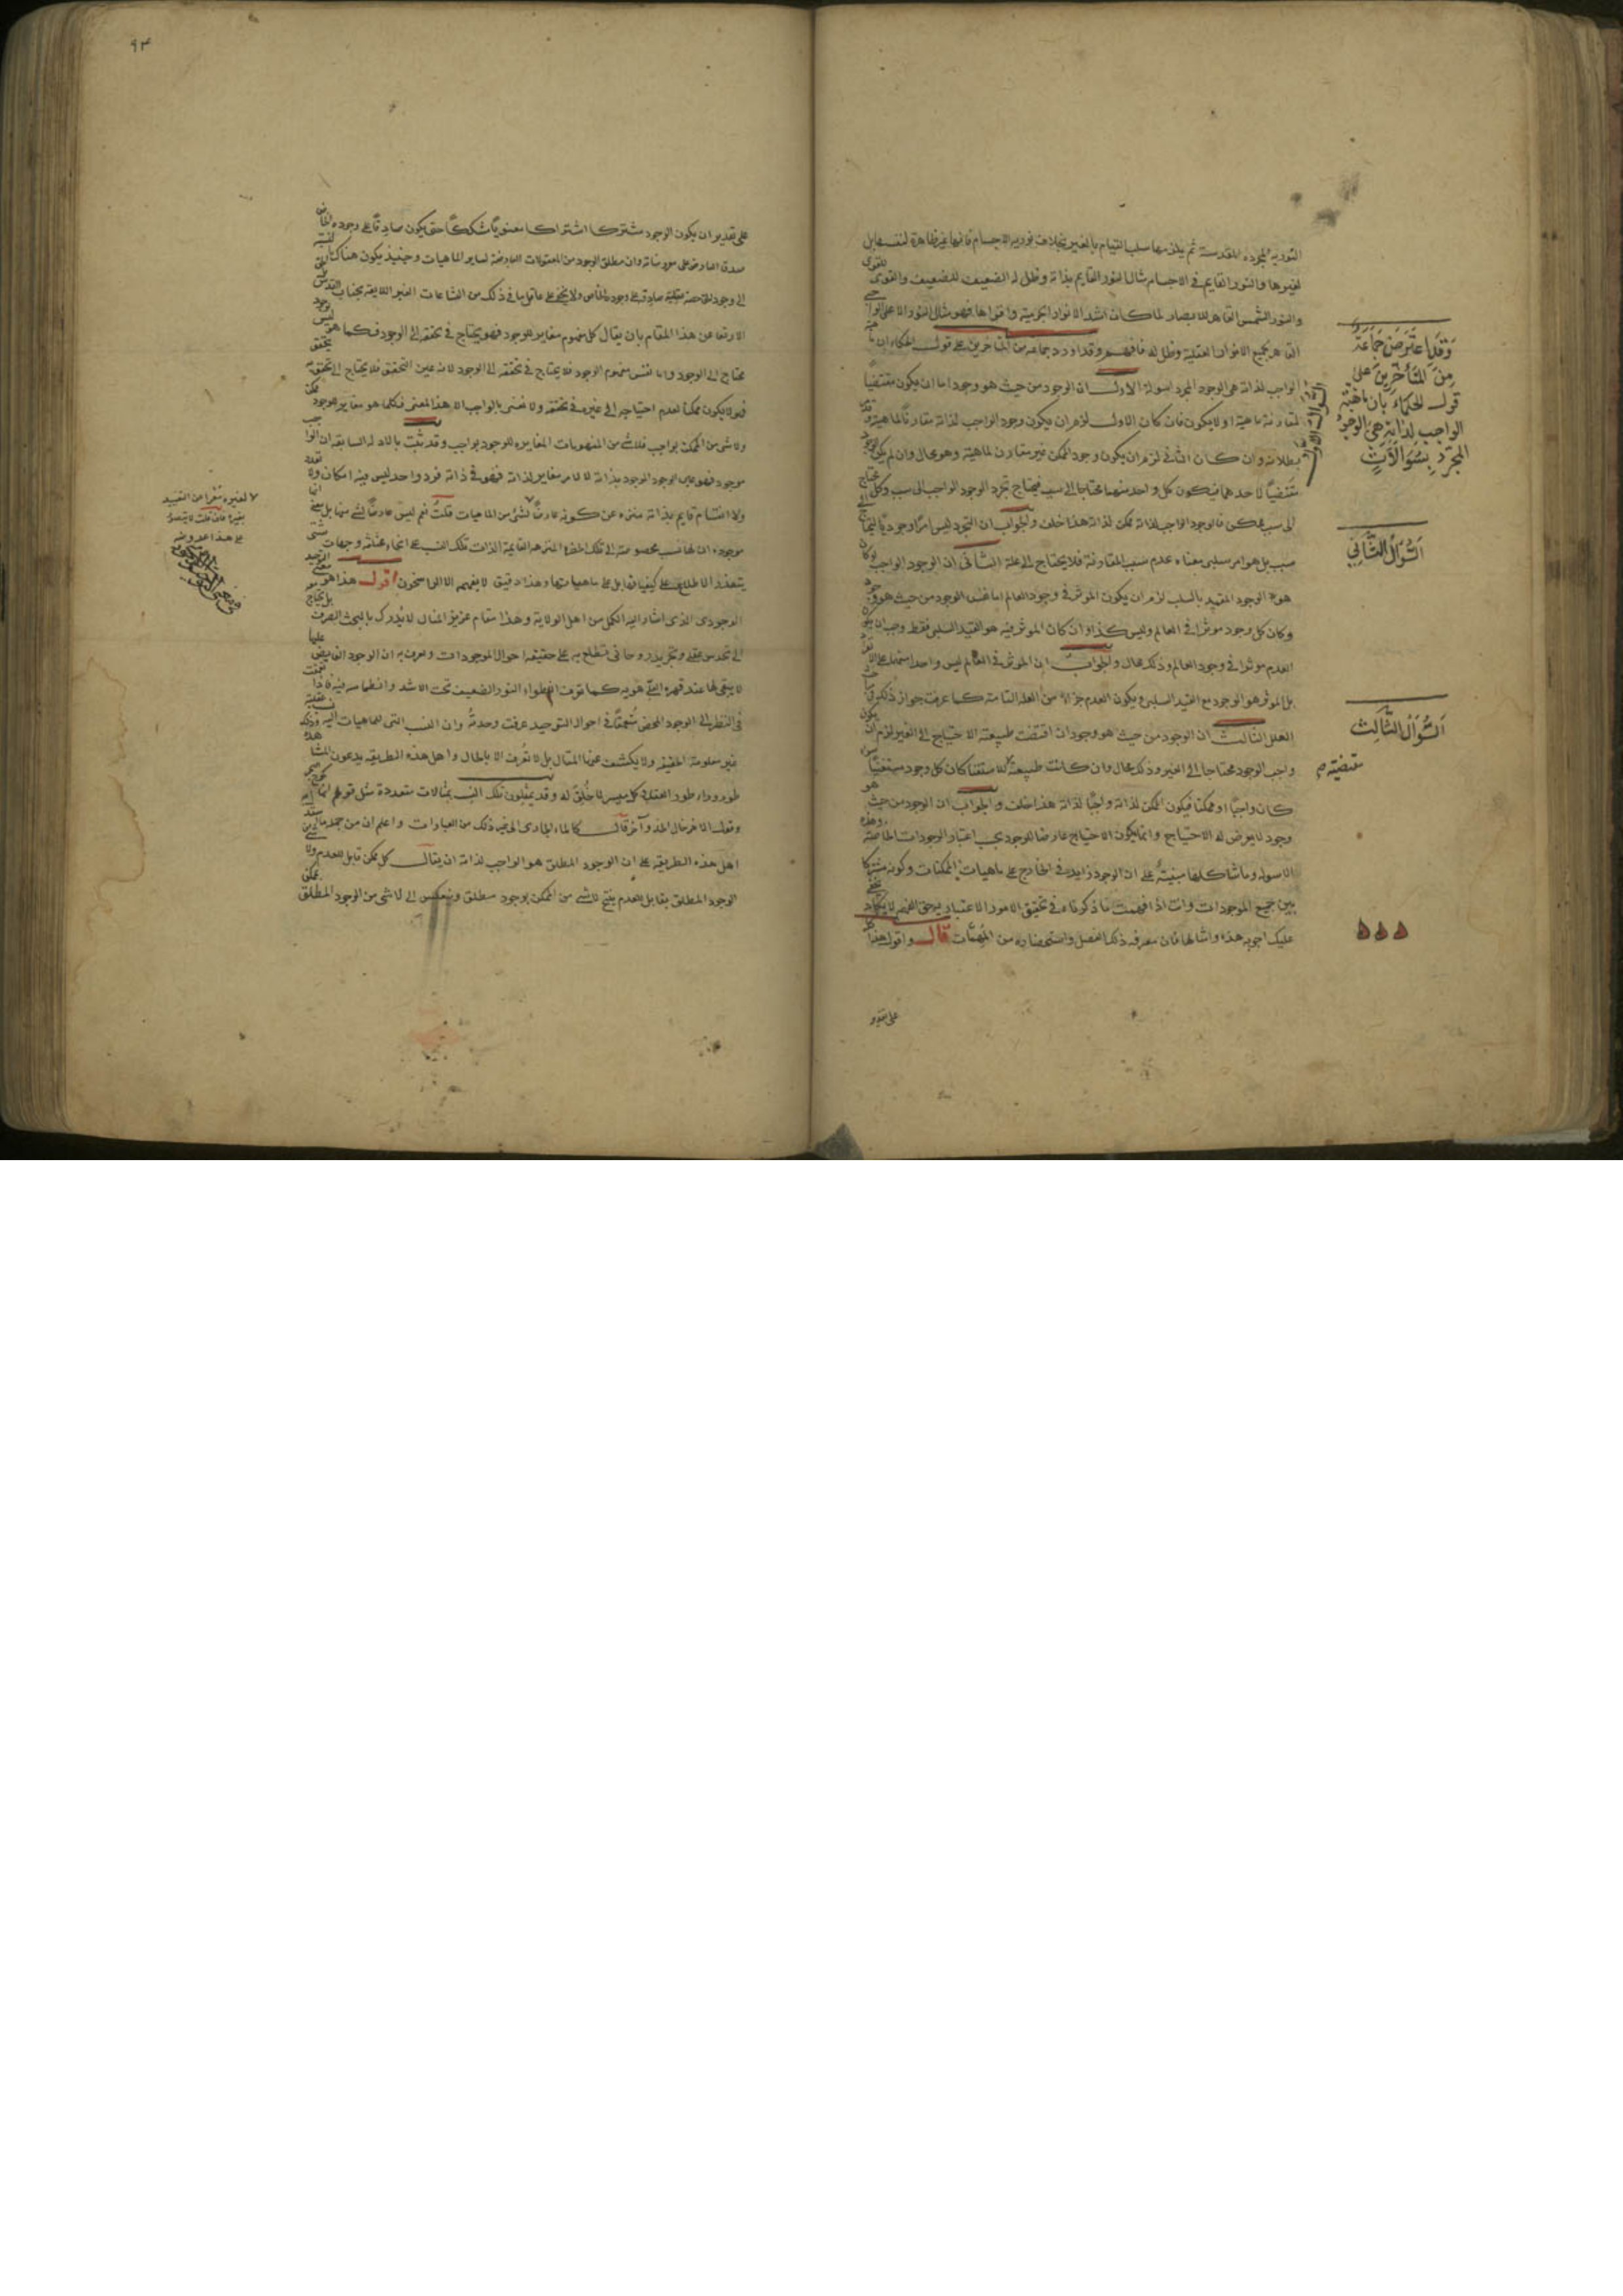 النورية المجردة المقدسة ثم يلزمها سلب القيام بالغير بخلاف نورية الاجسام فانها غير ظاهرة لنفسها بل
لغيرها والنور القايم في الاجسام مثال لنور القايم بذاته وظل له الضعيف للضعيف والقوى للقوى
والنور الشمسي القاهر للابصار لما كان اشد الانوار الجرمية واقواها فهو مثال النور الاعلى الواجبي
القاهر لجميع الانوار العقلية وظل له فافهم وقد اورد جماعة من المتاخرين على قول الحكماء ان ماهية
الواجب لذاته هي الوجود المجرد اسولة الاول ان الوجود من حيث هو وجود اما ان يكون مقتضيا
لمقارنة ماهية او لا يكون فان كان الاول لزم ان يكون وجود الواجب لذاته مقارنا لماهية وقد
بطلانه وان كان الثاني لزم ان يكون وجود الممكن غير مقارن لماهية وهو محال وان لم يكن الوجود
مقتضيا لاحدهما فيكون كل واحد منهما محتاجا الى سبب فيحتاج تجرد الوجود الواجب الى سبب وكل محتاج
الى سبب ممكن فالوجود الواجب لذاته ممكن لذاته هذا خلف والجواب ان التجرد ليس امرا وجوديا ليحتاج الى
سبب بل هو امر سلبي معناه عدم سبب المقارنة فلا يحتاج الى علة الثاني ان الوجود الواجب لو كان
هو الوجود المقيد بالسلب لزم ان يكون الموثر في وجود العالم اما نفس الوجود من حيث هو وجود
وكان كل وجود موثرا في العالم وليس كذا وان كان الموثر فيه هو القيد السلبي فقط وجب ان يكون
العدم موثرا في وجود العالم وذلك محال والجواب ان الموثر في العالم ليس واحدا منهما على الانفراد
بل الموثر هو الوجود مع القيد السلبي ويكون العدم جزاء من العلة التامة كما عرفت جواز ذلك في مباحث
العلل الثالث ان الوجود من حيث هو وجود ان اقتضت طبيعته الاحتياج الى الغير لزم ان يكون
واجب الوجود محتاجا الى الغير وذلك محال وان كانت طبيعته للاستغنا كان كل وجود مستغنيا سواء
كان واجبا او ممكنا فيكون الممكن لذاته واجبا لذاته هذا خلف والجواب ان الوجود من حيث هو
وجود لا يعرض له الاحتياج وانما يكون الاحتياج عارضا للوجود بحسب اعتبار الوجودات الخاصة وهذه
الاسولة وما شاكلها مبنية على ان الوجود زايد في الخارج على ماهيات الممكنات وكونه مشتركا
بين جميع الموجودات وانت اذا فهمت ما ذكرناه في تحقيق الامور الاعتبارية حق الفهم لا يكاد يخفى
عليك اجوبة هذه وامثالها فان معرفة ذلك الفصل واستحضاره من المهمات قال واقول هذا
على تقدير
وقد اعترض جماعة
من المتأخرين على
قول الحكماء بأن ماهية
الواجب لذاته هي الوجود
المجرد بسؤالات
السؤال الاول
السؤال الثاني
السؤال الثالث
مقتضية م
٩٣
على تقدير ان يكون الوجود مشتركا اشتراكا معنويا مشككا حتى يكون صادقا على وجوده الخاص
صدق العارض على معروضاته وان مطلق الوجود من المعقولات العارضة لساير الماهيات وحينئذ يكون هناك
الى وجود الخاصة عقلية صادقة على وجوده الخاص ولا يخفى على عاقل ما في ذلك من الشناعات الغير اللايقة بجناب القدس
الارتفاع من هذا المقام بان يقال كل مفهوم مغاير للوجود فهو يحتاج في تحققه الى الوجود فكما هو
محتاج الى الوجود واما نفس مفهوم الوجود فلا يحتاج في تحققه الى الوجود لانه عين التحقق فلا يحتاج الى تحقق
فلا يكون ممكنا لعدم احتياجه الى غيره في تحققه ولا نعني بالواجب الا هذا المعنى فكلما هو مغاير للوجود ممكن
ولا شي من الممكن بواجب فلا شي من المفهومات المغايرة للوجود بواجب وقد ثبت بالادلة السابقة ان الواجب
موجود فهو عين الوجود الموجود بذاته لا لامر مغاير لذاته فهو في ذاته فرد واحد ليس فيه امكان ولا تعدد
ولا انقسام قايم بذاته منزه عن كونه عارضا لشي من الماهيات قلت نعم ليس عارضا لشي منها بل معنى
موجودة ان لها نسب مخصوصة الى تلك الحضرة المنزهة القايمة الذات تلك النسب على انحاء مختلفة وجهات شتى
يتعذر الاطلاع على كيفياتها بل على ماهياتها وهذا دقيق لا يفهمه الا الراسخون اقول هذا هو التوحيد
الوجودي الذي اشار اليه الكمل من اهل الولاية وهذا مقام عزيز المنال لا يدرك بالبحث الصرف بل يحتاج
الى حدس عقلي وتجريد روحاني يطلع به على حقيقة احوال الموجودات ويعرف به ان الوجود الفايض عليها
لا يبقى لها عند قهره الاعلى هوية كما عرفت انطواء النور الضعيف تحت الاشد وانطماسه فيه فاذا تعمقت
في النظر الى الوجود المحض متعمقا في احوال التوحيد عرفت وحدته وان النسب التي للماهيات اليه
غير معلومة الحقيقة ولا يكشف عنها المقال بل لا تعرف الا بالحال واهل هذه الطريقة يدعون المشاهدة
طور وراء طور العقل في كل ميسر لما خلق له وقد يمثلون تلك النسب بمثالات متعددة مثل قولهم
وقول الاخر خال الخد وآخر قال كالماء الجاري الى غير ذلك من العبارات واعلم ان من جملة ما استدل
اهل هذه الطريقة على ان الوجود المطلق هو الواجب لذاته ان يقال كل ممكن قابل للعدم ولا شي من
الوجود المطلق بقابل للعدم ينتج لا شي من الممكن بوجود مطلق وينعكس الى لا شي من الوجود المطلق بممكن